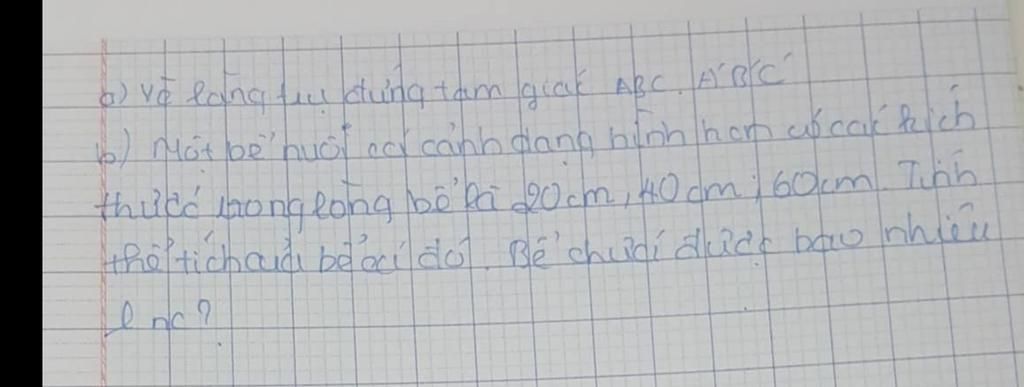 a) Vẽ lăng trụ đứng tam giác ABC. A'B'C'
b) Một bể nuôi cá cảnh dạng hình hcn có các kích
thước trong lòng bể là 20cm, 40cm, 60cm. Tính
thể tích của bể cá đó. Bể chưá được bao nhiêu
l nc?